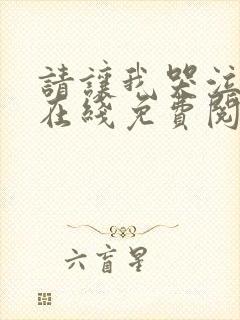 請讓我哭泣
在綫免費閱
六盲星